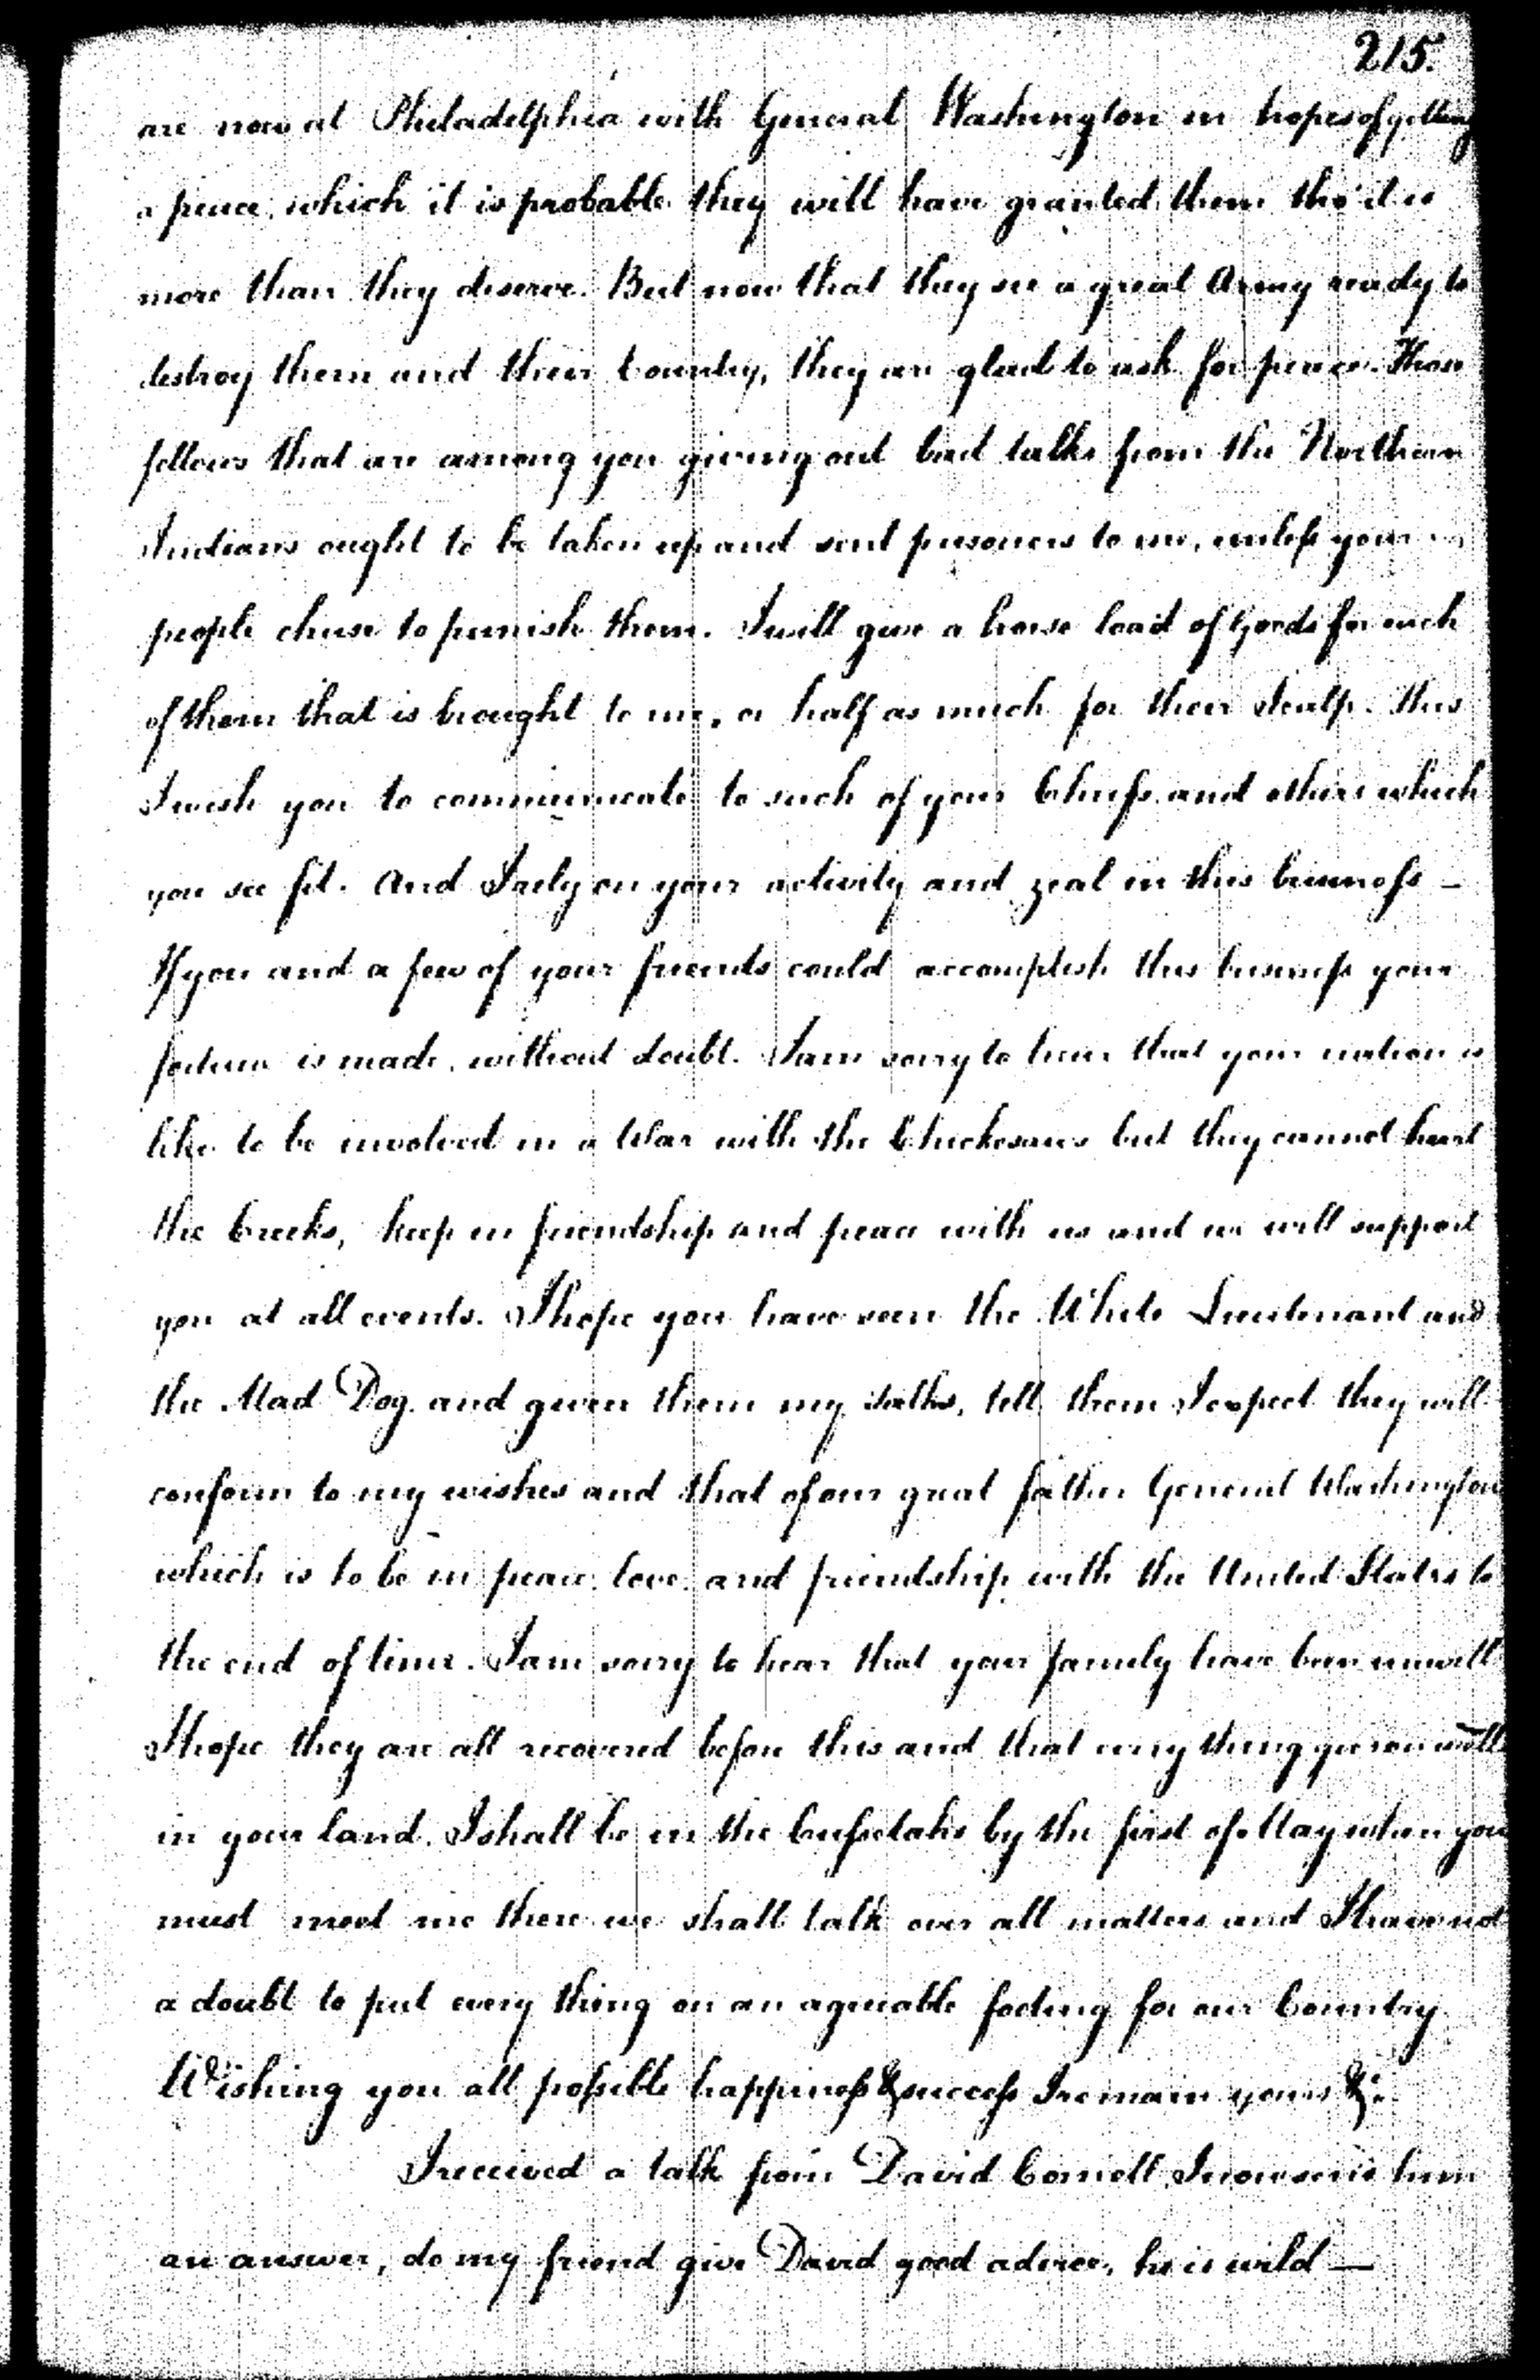 215.
are now at Philadelphia with General Washington in hopes of getting
a peace, which it is probable they will have granted them tho' it is
more than they deserve. But now that they see a great Army ready to
destroy them and their Country, they are glad to ask for peace. Those
fellows that are among you giving out bad talks from the Northern
Indians ought to be taken up and sent prisoners to me, unless your
people chuse to punish them. I will give a horse load of Goods for each
of them that is brought to me, or half as much for their Scalp. This
I wish you to communicate to such of your Chiefs and others which
you see fit. And I rely on your activity and zeal in this business —
If you and a few of your friends could accomplish this business your
fortune is made, without doubt. I am sorry to hear that your nation is
like to be involved in a War with the Chickesaws but they cannot hurt
the Creeks, keep in friendship and peace with us and we will support
you at all events. I hope you have seen the White Lieutenant and
the Mad Dog and given them my talks, tell them I expect they will
conform to my wishes and that of our great father General Washington
which is to be in peace, love, and friendship with the United States to
the end of time. I am sorry to hear that your family have been unwell
I hope they are all recovered before this and that every thing goes on well
in your land. I shall be in the Cussetahs by the first of May when you
must meet me there we shall talk over all matters and I have not
a doubt to put every thing on an agreable footing for our Country.
Wishing you all possible happiness & success I remain yours &c.
I received a talk from David Cornell, I now send him
an answer, do my friend give David good advice, he is wild —